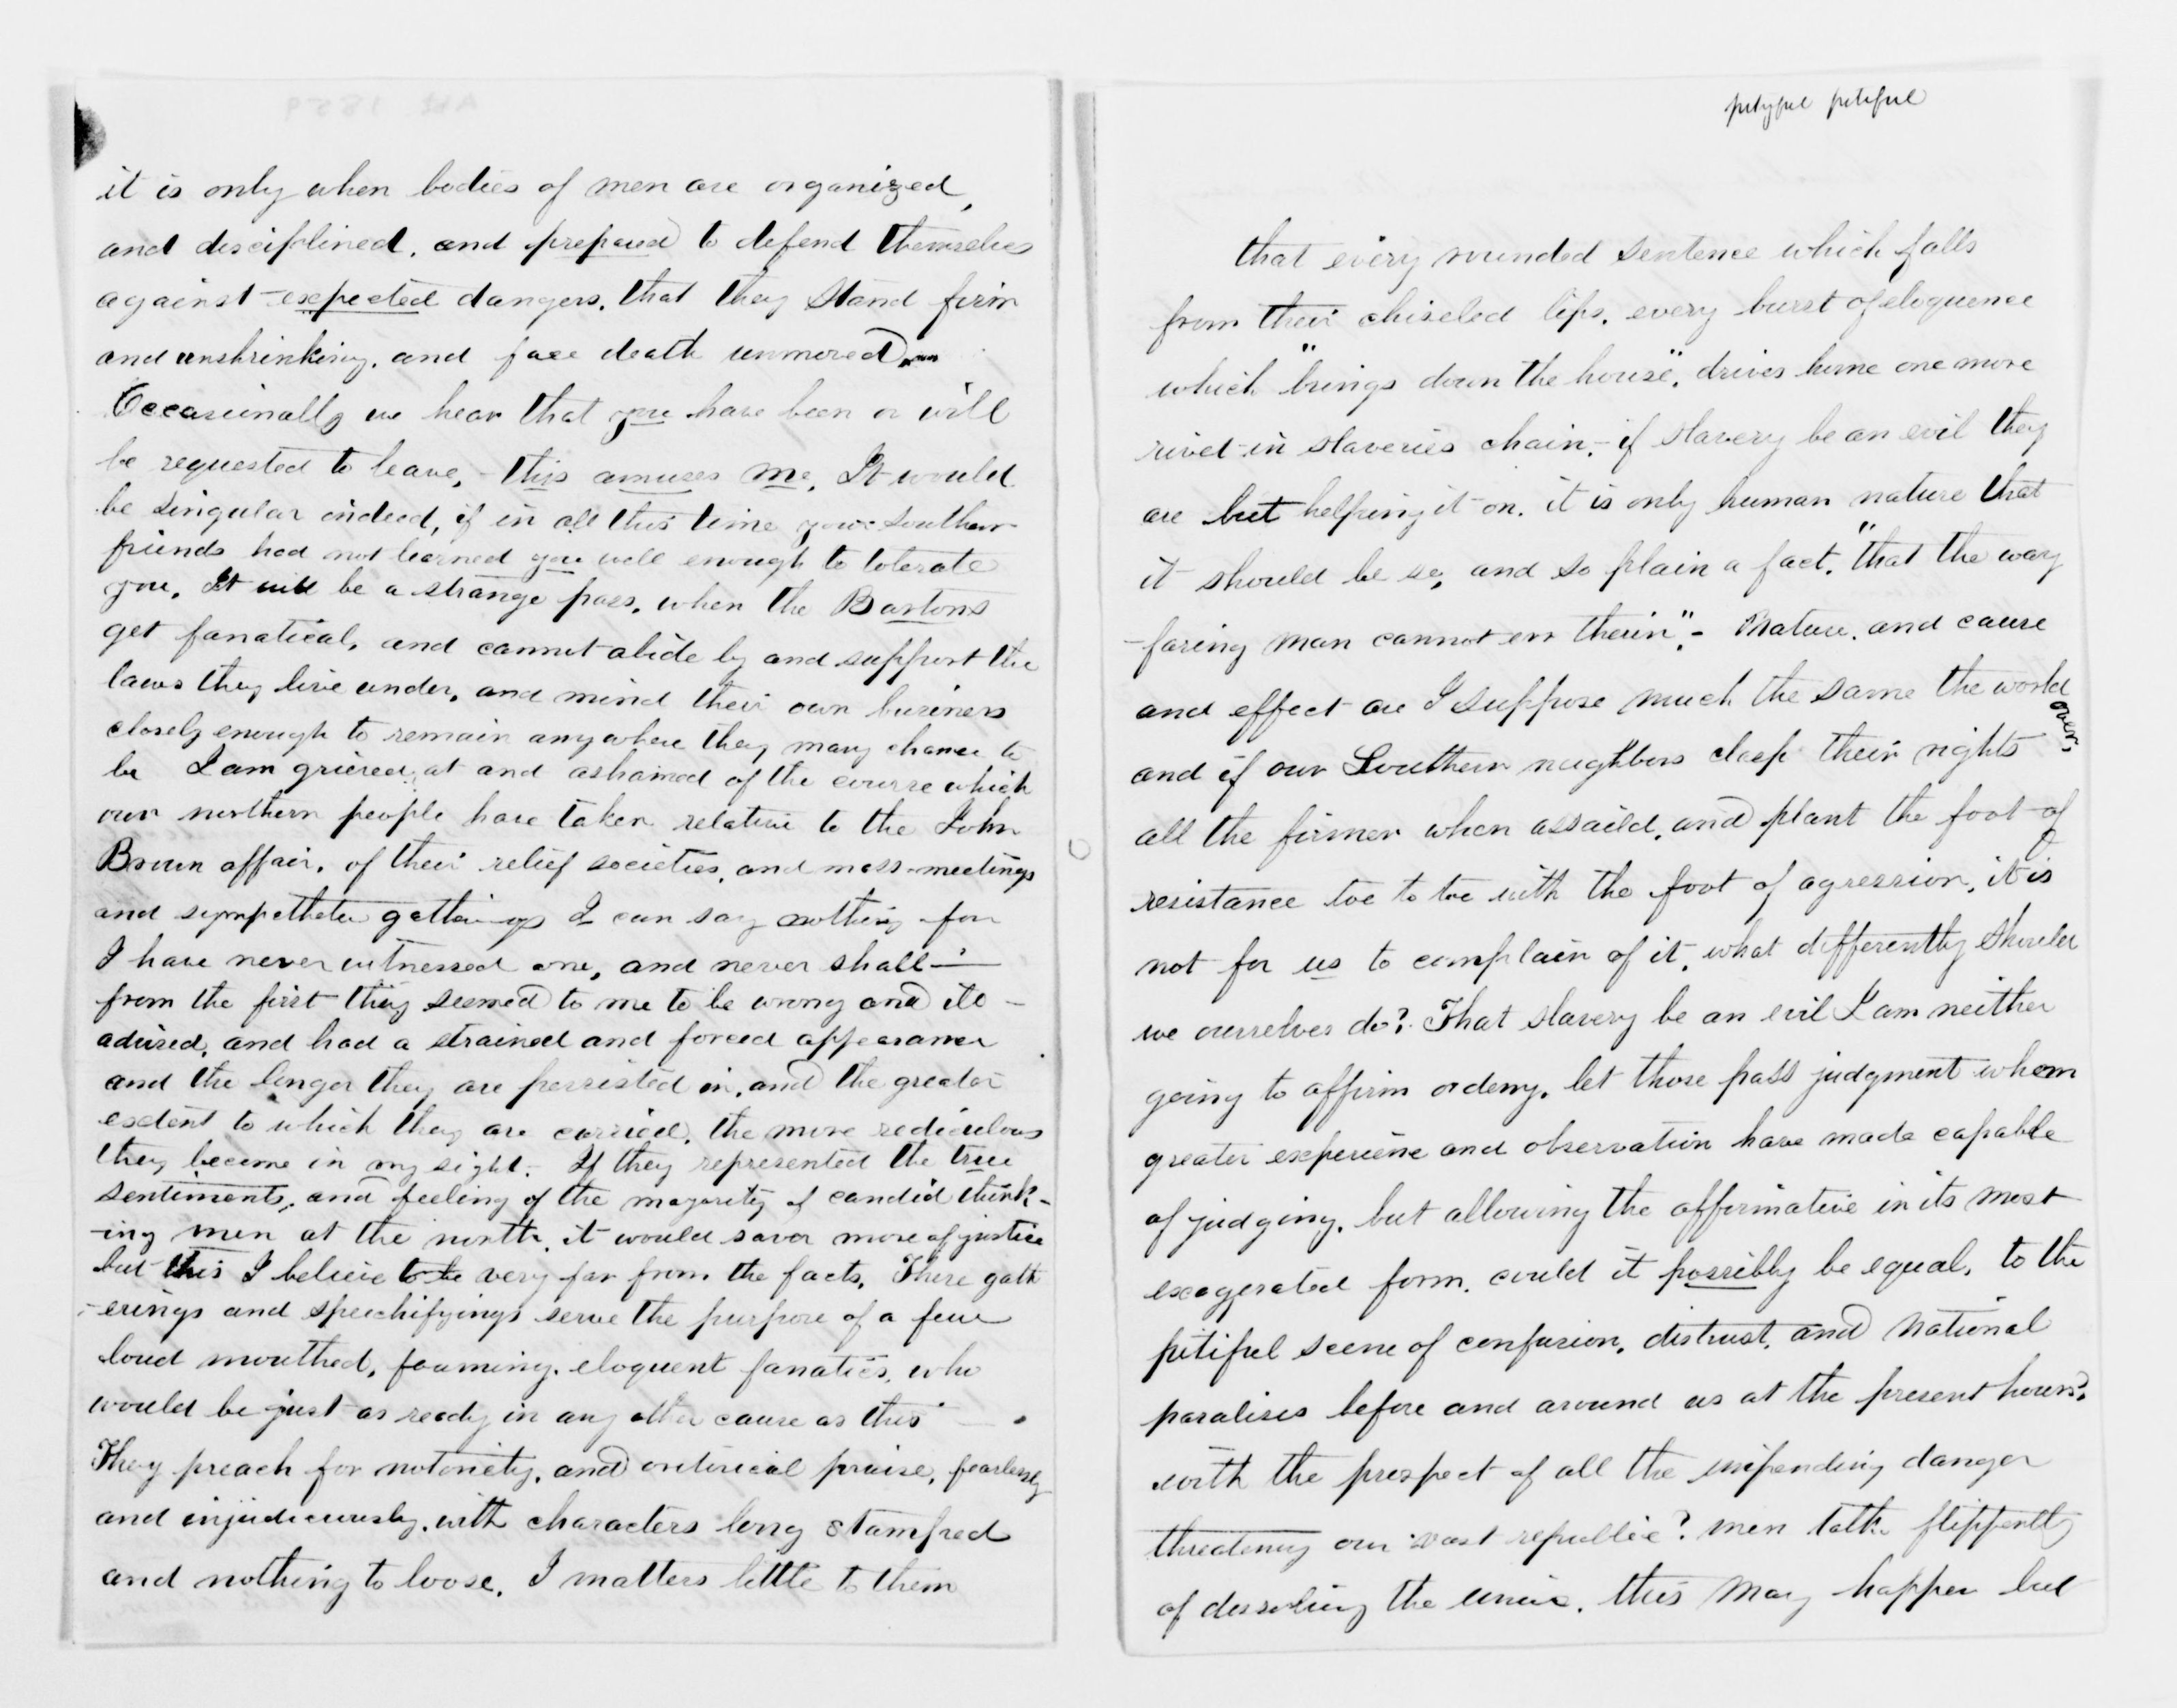 it is only when bodies of men are organized,
and disciplined, and prepared to defend themselves
against expected dangers, that they stand firm
and unshrinking, and face death unmoved
Occasionally we hear that you have been or will
be requested to leave, - this amuses me, It would
be singular indeed, if in all this time your southern
friends had not learned you well enough to tolerate
you. It will be a strange pass, when the Bartons
get fanatical, and cannot abide by and support the
laws they live under, and mind their own business
closely enough to remain anywhere they may chance to
be I am grieved at and ashamed of the course which
our northern people have taken relative to the John
Brown affair, of their relief societies, and mass-meetings
and sympathetic gatherings I can say nothing for
I have never witnessed one, and never shall -
from the first they seemed to me to be wrong and ill-
advised, and had a strained and forced appearance
and the longer they are persisted in, and the greater
extent to which they are carried, the more rediculous
they become in my sight. If they represented the true
sentiments, and feeling of the majority of candid think-
-ing men at the north, it would savor more of justice
but this I believe to be very far from the facts, There gath
-erings and speechifyings serve the purpose of a few
loud mouthed, foaming, eloquent fanatics, who
would be just as ready in any other cause as this -
They preach for notoriety, and oritorical praise, fearlessly
and injudiciously, with characters long stamped
and nothing to loose. I matters little to them
pityful pitiful
that every rounded sentence which falls
from their chiseled lips, every burst of eloquence
which "brings down the house", drives home one more
rivet in slaveries chain, - if slavery be an evil they
are but helping it on, it is only human nature that
it should be so, and so plain a fact, "that the way
-faring man cannot err therin". - Nature, and cause
and effect are I suppose much the same the world over,
and if our Southern neighbors clasp their rights
all the firmer when assaild, and plant the foot of
resistance toe to toe with the foot of agression, it is
not for us to complain of it, what differently should
we ourselves do? That slavery be an evil I am neither
going to affirm or deny, let those pass judgment whom
greater experiene and observation have made capable
of judging, but allowing the affirmative in its most
exagerated form, could it possibly be equal, to the
pitiful scene of confusion, distrust, and national
paralisis before and around us at the present hour,
with the prospect of all the impending danger
threatening our vast republic? men talk flippently
of dissolving the union, this may happen but